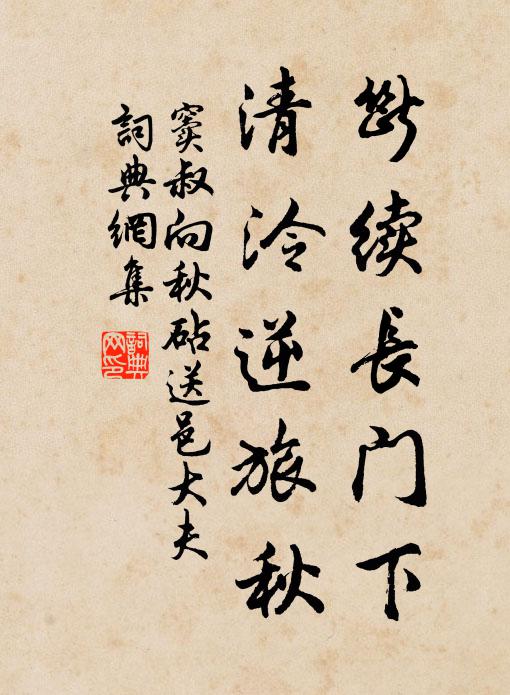 斷续長门下
清泠逆旅秋
竇叔向秋砧送邑大夫
詞典網集
詞典
网印